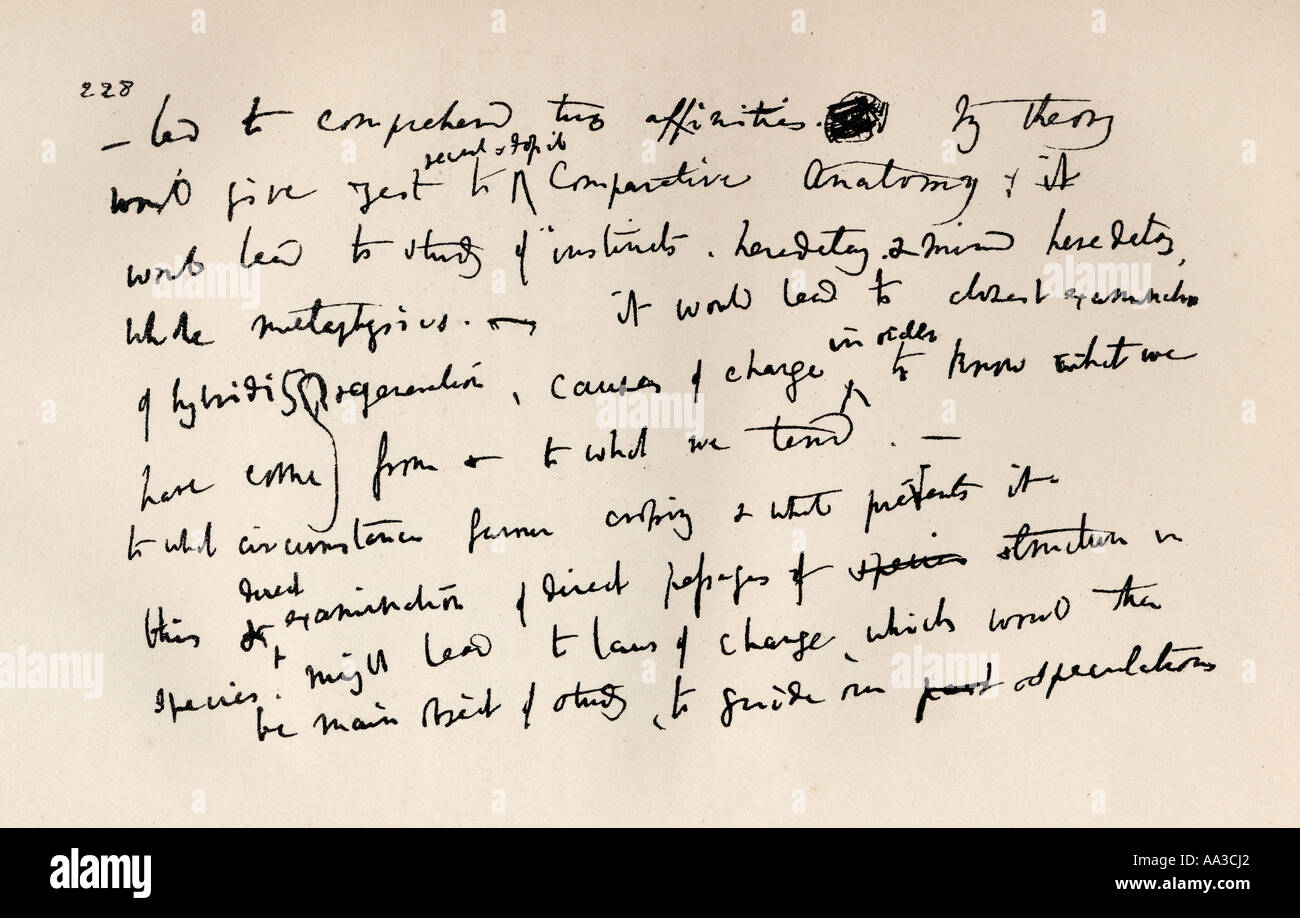 228
– led to comprehend true affinities. My theory
would give zest to recent & fossil Comparative Anatomy, & it
would lead to study of instincts, heredetary & mind heredetary,
whole metaphysics. — it would lead to closest examination
of hybridity regeneration, causes of change in order to know what we
have come from & to what we tend. —
to what circumstances favour crossing & what prevents it –
this & direct examination of direct passages of species structure in
species might lead to laws of change, which would then
be main object of study, to guide our past speculations
alamy
alamy
Image ID: AA3CJ2
www.alamy.com